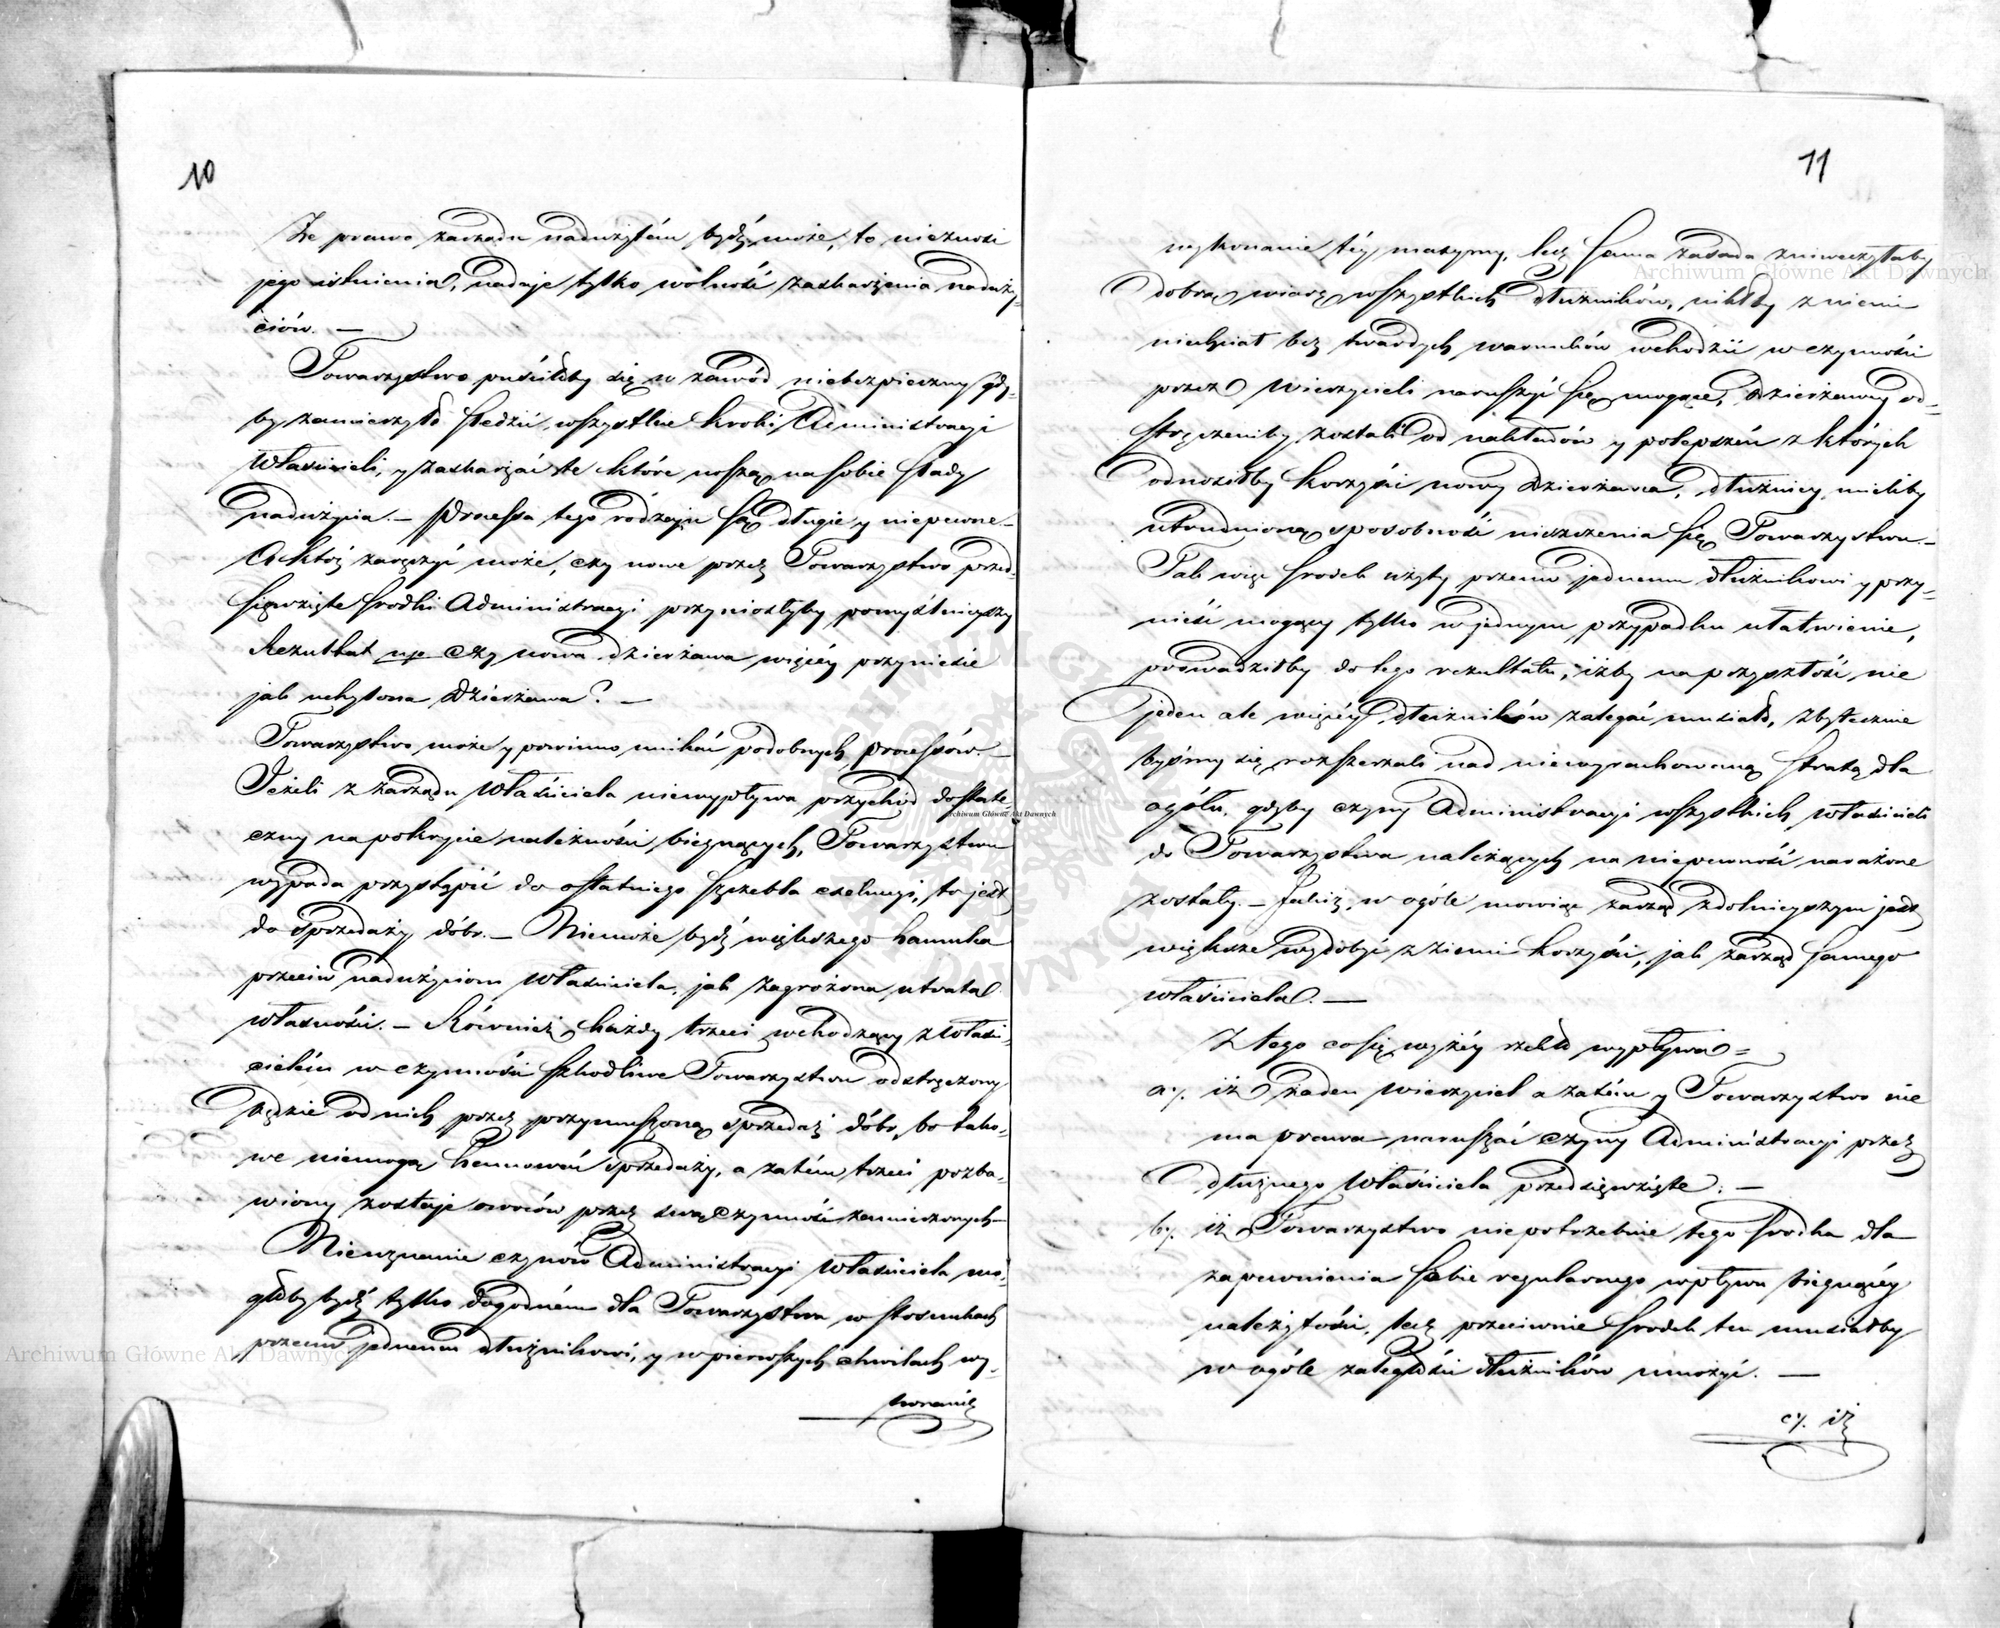 10
Że prawo zarządu nadużytém bydź może, to nieznosi
jego istnienia, nadaje tylko wolność zaskarżenia naduży-
ciów. —
Towarzystwo puściłoby się w zawód niebezpieczny gdy-
by zamierzyło śledzić wszystkie kroki Administracyi
Właścicieli, y zaskarżać te które noszą na sobie ślady
nadużycia. — Processa tego rodzaju są długie y niepewne —
A któż zaręczyć może, czy nowe przez Towarzystwo przed-
sięwzięte środki Administracyi przyniosłyby pomyślnieyszy
Rezultat np. czy nowa dzierżawa więcéy przyniesie
jak uchylona Dzierżawa? —
Towarzystwo może y powinno unikać podobnych processów. —
Jeżeli z zarządu Właściciela niewypływa przychód dostate-
czny na pokrycie należności bieżących, Towarzystwu
wypada przystąpić do ostatniego szczebla exekucyi, to jest
do sprzedaży dóbr. — Niemoże bydź większego hamulca
przeciw nadużyciom Właściciela, jak zagrożona utrata
własności. — Również każdy trzeci wchodzący z Właści-
cielém w czynności szkodliwe Towarzystwu odstręczony
będzie od nich przez przymuszoną sprzedaż dóbr, bo tako-
we niemogą hamować sprzedaży, a zatém trzeci pozba-
wiony zostaje owoców przez swą czynność zamierzonych —
Nieuznanie czynów Administracyi Właściciela mo-
głoby bydź tylko dogodném dla Towarzystwa w stosunkach
przeciw jednemu dłużnikowi, y w pierwszych chwilach wy-
konanie
11
wykonanie téy maxymy, lecz sama zasada zniweczyłaby
dobrą wiarę wszystkich dłużników, niktby z niemi
niechciał bez twardych warunków wchodzić w czynności
przez Wierzycieli naruszyć się mogące, Dzierżawcy od-
stręczeniby zostali od nakładów y polepszeń z których
odnosiłby korzyści nowy Dzierżawca, dłużnicy mieliby
utrudnioną sposobność uiszczenia się Towarzystwu. —
Tak więc środek użyty przeciw jednemu dłużnikowi y przy-
nieść mogący tylko w jednym przypadku ułatwienie,
prowadziłby do tego rezultatu, iżby na przyszłość nie
jeden ale więcéy dłużników zalegać musiało, zbytecznie
byśmy się rozszerzali nad niewyrachowaną stratą dla
ogółu, gdyby czyny Administracyi wszystkich właścicieli
do Towarzystwa należących na niepewność narażone
zostały. — Jakiż, w ogóle mowiąc zarząd zdolnieyszym jest
większe wydobyć z ziemi korzyści, jak zarząd samego
właściciela. —
Z tego co się wyżéy rzekło wypływa =
a/. iż żaden wierzyciel a zatém y Towarzystwo nie
ma prawa naruszać czyny Administracyi przez
dłużnego Właściciela przedsięwzięte; —
b/. iż Towarzystwo niepotrzebuie tego środka dla
zapewnienia sobie regularnego wpływu bieżącéy
należytości, lecz przeciwnie środek ten musiałby
w ogóle zaległości dłużników umożyć. —
c/. iż
Archiwum Główne Akt Dawnych
Archiwum Główne Akt Dawnych
Archiwum Główne Akt Dawnych